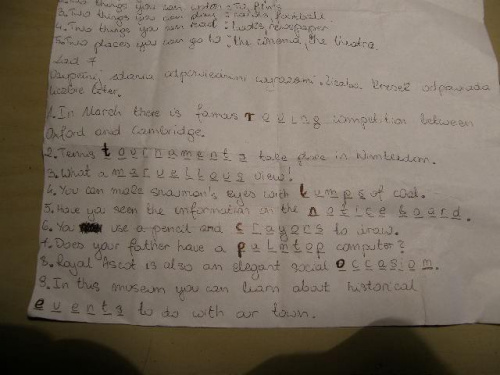 2. Two things you can watch: TV, films
3. Two things you can play: cards, football
4. Two things you can read: books, newspaper
5. Two places you can go to: the cinema, the theatre.
Zad 7
Uzupełnij zdania odpowiednimi wyrazami. Liczba kresek odpowiada
liczbie liter.
1. In March there is famous rowing competition between
Oxford and Cambridge.
2. Tennis tournaments take place in Wimbledon.
3. What a marvellous view!
4. You can make snowman's eyes with lumps of coal.
5. Have you seen the information on the notice board.
6. You use a pencil and crayons to draw.
7. Does your father have a palmtop computer?
8. Royal Ascot is also an elegant social occasion.
9. In this museum you can learn about historical
events to do with our town.